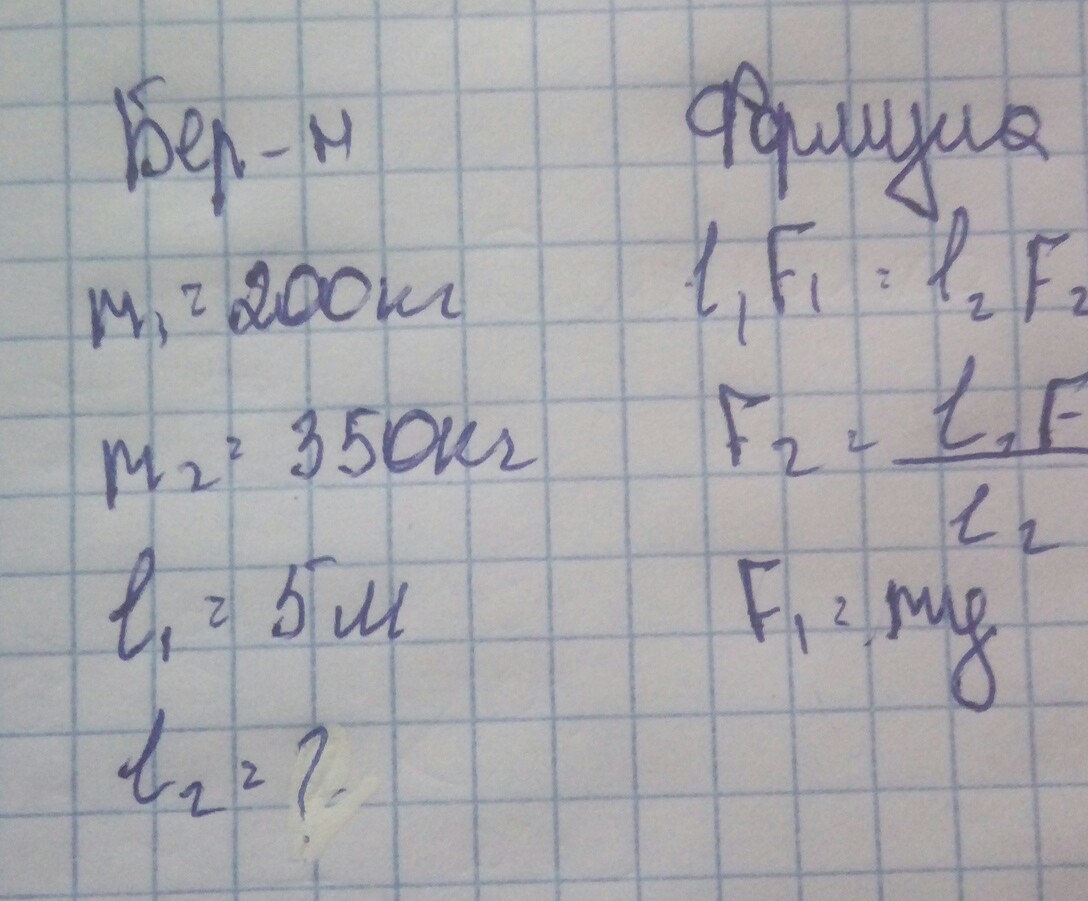 Бер-н
m₁ = 200кг
m₂ = 350кг
l₁ = 5м
l₂ = ?
Формула
l₁F₁ = l₂F₂
F₂ = l₁F / l₂
F₁ = mg